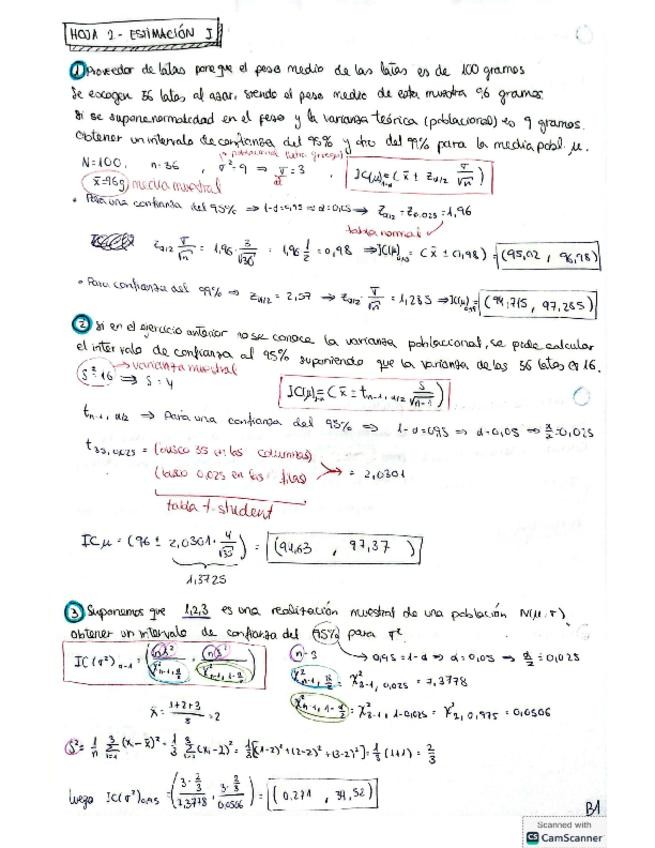 HOJA 2 - ESTIMACIÓN I
① Proveedor de latas pone que el peso medio de las latas es de 100 gramos
Se escogen 36 latas al azar, siendo el peso medio de esta muestra 96 gramos.
Si se supone normalidad en el peso y la varianza teórica (poblacional) es 9 gramos.
Obtener un intervalo de confianza del 95% y otro del 99% para la media pobl. μ.
→ poblacional (letra griega)
N=100, n=36, σ²=9 ⇒ σ=3, IC(μ)₁₋α=(x̄ ± Zα/2 σ/√n)
x̄=96g media muestral
• Para una confianza del 95% ⇒ 1-α=0,95 ⇒ α=0,05 → Zα/2 = Z0.025=1,96
tabla normal
Zα/2 σ/√n = 1,96 · 3/√36 = 1,96 · 1/2 = 0,98 ⇒ IC(μ)0,95 = (x̄ ± 0,98) = (95,02 , 96,98)
• Para confianza del 99% ⇒ Zα/2 = 2,57 ⇒ Zα/2 · σ/√n = 1,285 ⇒ IC(μ)0,99 = (94,715, 97,285)
② Si en el ejercicio anterior no se conoce la varianza poblacional, se pide calcular
el intervalo de confianza al 95% suponiendo que la varianza de las 36 latas es 16.
S²=16 → varianza muestral
⇒ S=4 IC(μ)=(x̄ ± tn-1, α/2 S/√n-1)
tn-1, α/2 ⇒ Para una confianza del 95% ⇒ 1-α=0,95 ⇒ α=0,05 ⇒ α/2=0,025
t35,0,025 = (busco 35 en las columnas)
(busco 0,025 en las filas) = 2,0301
tabla t-student
ICμ = (96 ± 2,0301 · 4/√35) = (94,63 , 97,37)
1,3725
③ Suponemos que 1,2,3 es una realización muestral de una población N(μ,σ),
obtener un intervalo de confianza del 95% para σ²
→ 0,95=1-α ⇒ α=0,05 ⇒ α/2=0,025
IC(σ²)₁₋α = (nS²/χ²n-1, α/2 , nS²/χ²n-1, 1-α/2) n=3
χ²n-1, α/2 = χ²3-1, 0,025 = 7,3778
x̄ = 1+2+3/3 = 2 χ²n-1, 1-α/2 = χ²3-1, 1-0,025 = χ²2, 0,975 = 0,0506
S² = 1/n Σ(xi-x̄)² = 1/3 Σ(xi-2)² = 1/3[(1-2)²+(2-2)²+(3-2)²] = 1/3(1+1) = 2/3
luego IC(σ²)0,95 = (3·2/3/7,3778 , 3·2/3/0,0506) = (0.271 , 39,52)
B1
Scanned with
CS CamScanner